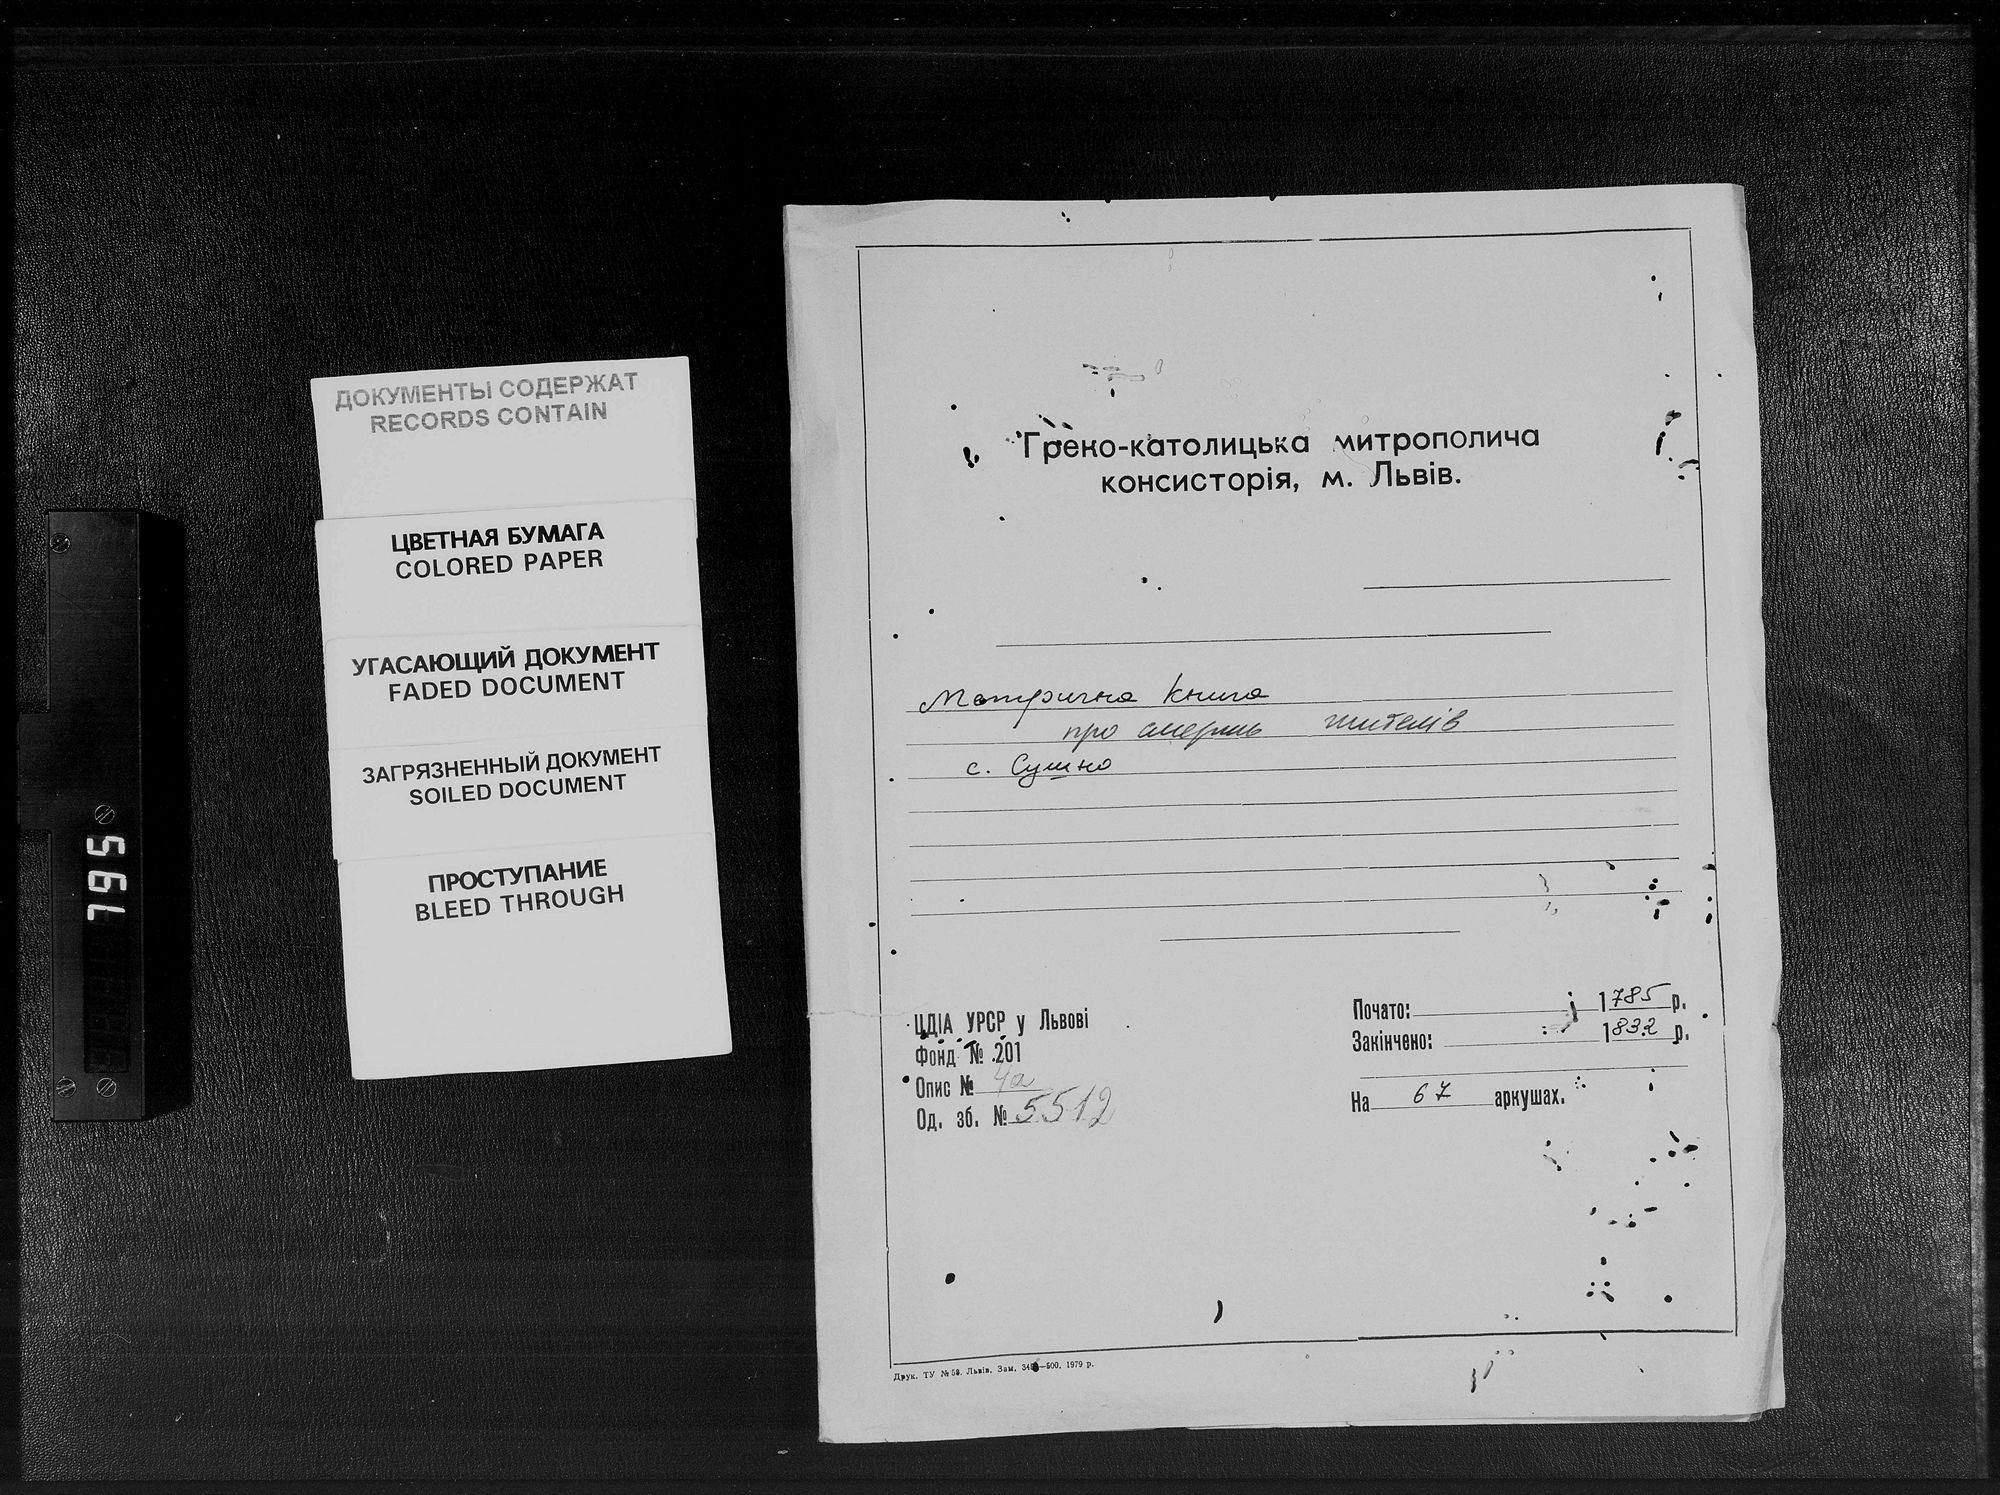 ДОКУМЕНТЫ СОДЕРЖАТ
RECORDS CONTAIN
ЦВЕТНАЯ БУМАГА
COLORED PAPER
УГАСАЮЩИЙ ДОКУМЕНТ
FADED DOCUMENT
ЗАГРЯЗНЕННЫЙ ДОКУМЕНТ
SOILED DOCUMENT
ПРОСТУПАНИЕ
BLEED THROUGH
795
Греко-католицька митрополича
консисторія, м. Львів.
Метрична книга
про смерть жителів
с. Сушно
ЦДІА УРСР у Львові
Фонд № 201
Опис № 4а
Од. зб. № 5512
Почато: 1785 р.
Закінчено: 1832 р.
На 67 аркушах.
Друк. ТУ № 58. Львів. Зам. –500. 1979 р.